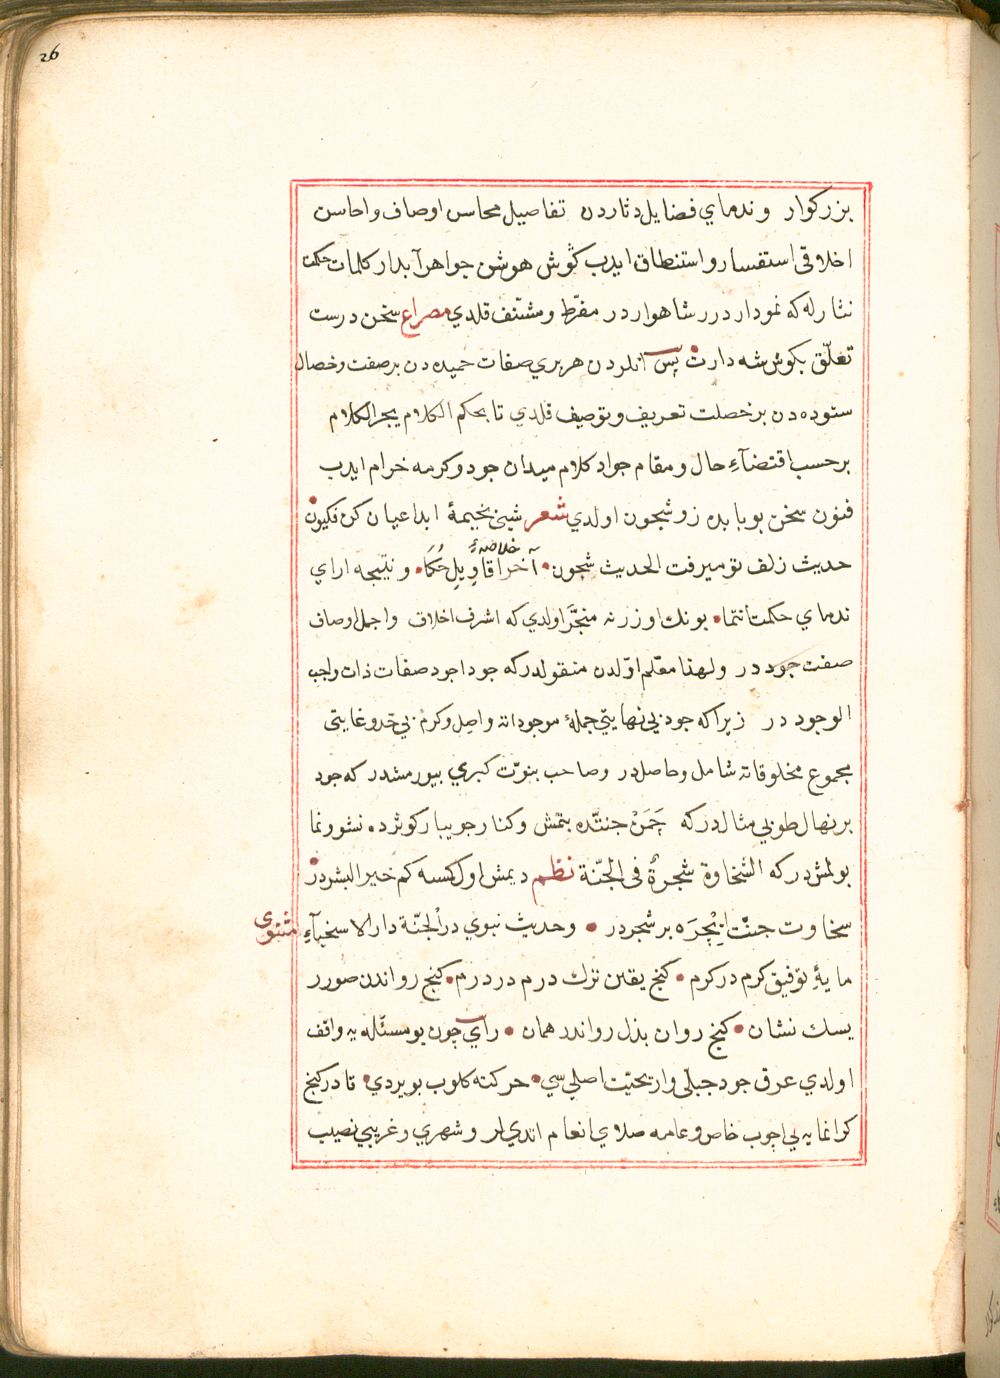 26
بزركوار وندماي فضايل دثاردن تفاصيل محاسن اوصاف واحاسن
اخلاقى استفسار واستنطاق ايدب كوش هوشن جواهر آبدار كلمات حكمت
نثارله كه نمودار درر شاهوار در مقرّط ومشنّف قلدي مصراع سخن درست
تعلّق بكوش شه دارت پس انلردن هر بري صفات حميده دن بر صفت وخصال
ستوده دن بر خصلت تعريف وتوصيف قلدي تا بحكم الكلام يجر الكلام
برحسب اقتضآء حال ومقام جواد كلام ميدان جود وكرمه خرام ايدب
فنون سخن بو بابده زو شجون اولدي شعر شبى بخيمهٔ ابداعيان كن فكيون
حديث زلف تو ميرفت الحديث شجون آخر اقاويل خلاصهٔ حكما ونتيجه اراي
ندماي حكمت انتما بونك اوزرنه منجّر اولدي كه اشرف اخلاق واجمل اوصاف
صفت جود در ولهنا معلّم اوّلدن منقولدركه جود اجود صفات ذات واجب
الوجود در زيرا كه جود بي نهايتى جملهٔ موجوداته واصل وكرم بي حد وغايتى
مجموع مخلوقاته شامل وحاصلدر وصاحب بنوّت كبري بيورمشدر كه جود
بر نهال طوبي مثالدركه چمن جنتده بتمش وكنار جويبار كوثرده نشو ونما
بولمشدركه السّخاوة شجرةٌ فى الجنّة نظم ديمش اول كسه كم خير البشر در
سخاوت جنّت ايچره بر شجردر وحديث نبوي در الجنّة دار الاسخيآء مثنوى
مايهٔ توفيق كرم در كرم كنج يقين ترك درم در درم كنج روانـدن صورر
يسك نشان كنج روان بذل رواندر همان راي چون بو مسئله يه واقف
اولدي عرق جود جبلى واريحيّت اصلى سي حركته كلوب بويردي تا در كنج
كرانمايه يى اچوب خاص وعامه صلاي انعام اتديلر وشهري وغريبي نصيب